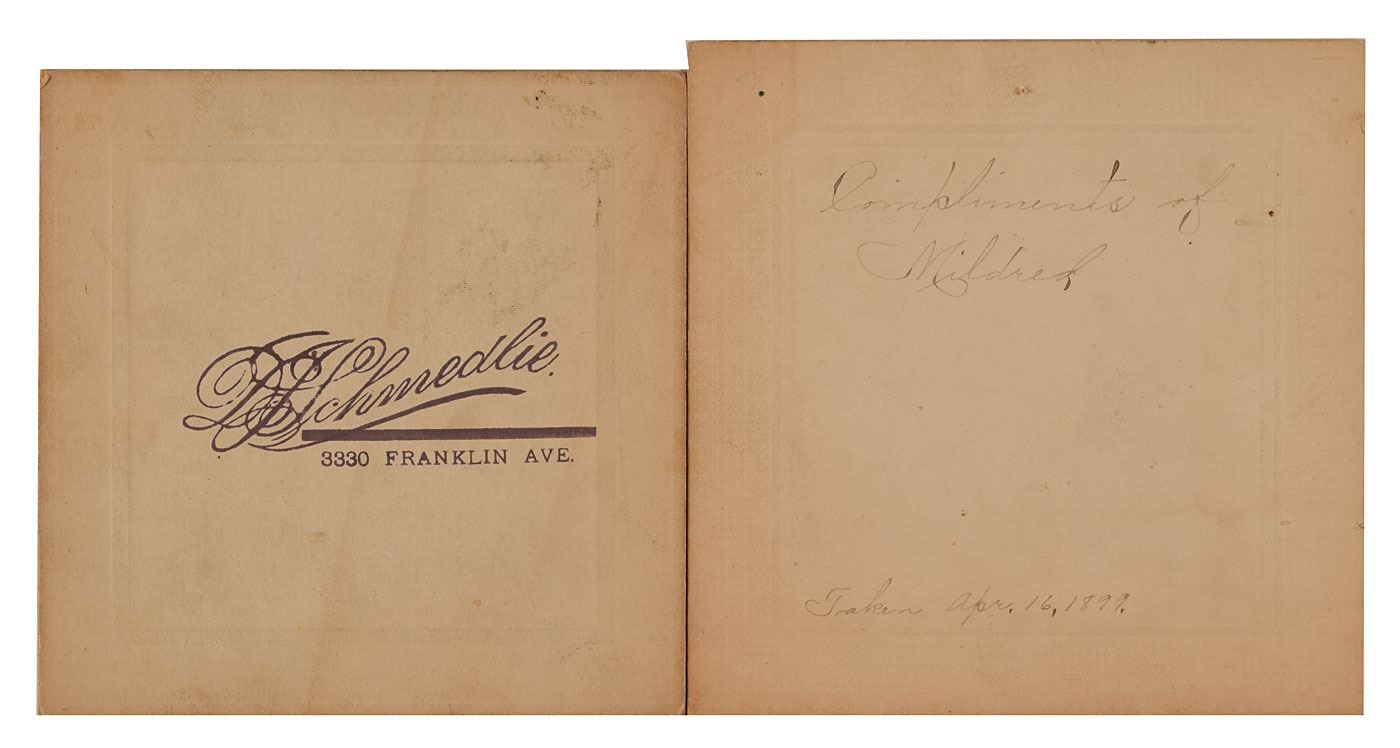 Schmedlie.
3330 FRANKLIN AVE.
Compliments of
Mildred
Taken Apr. 16, 1899.